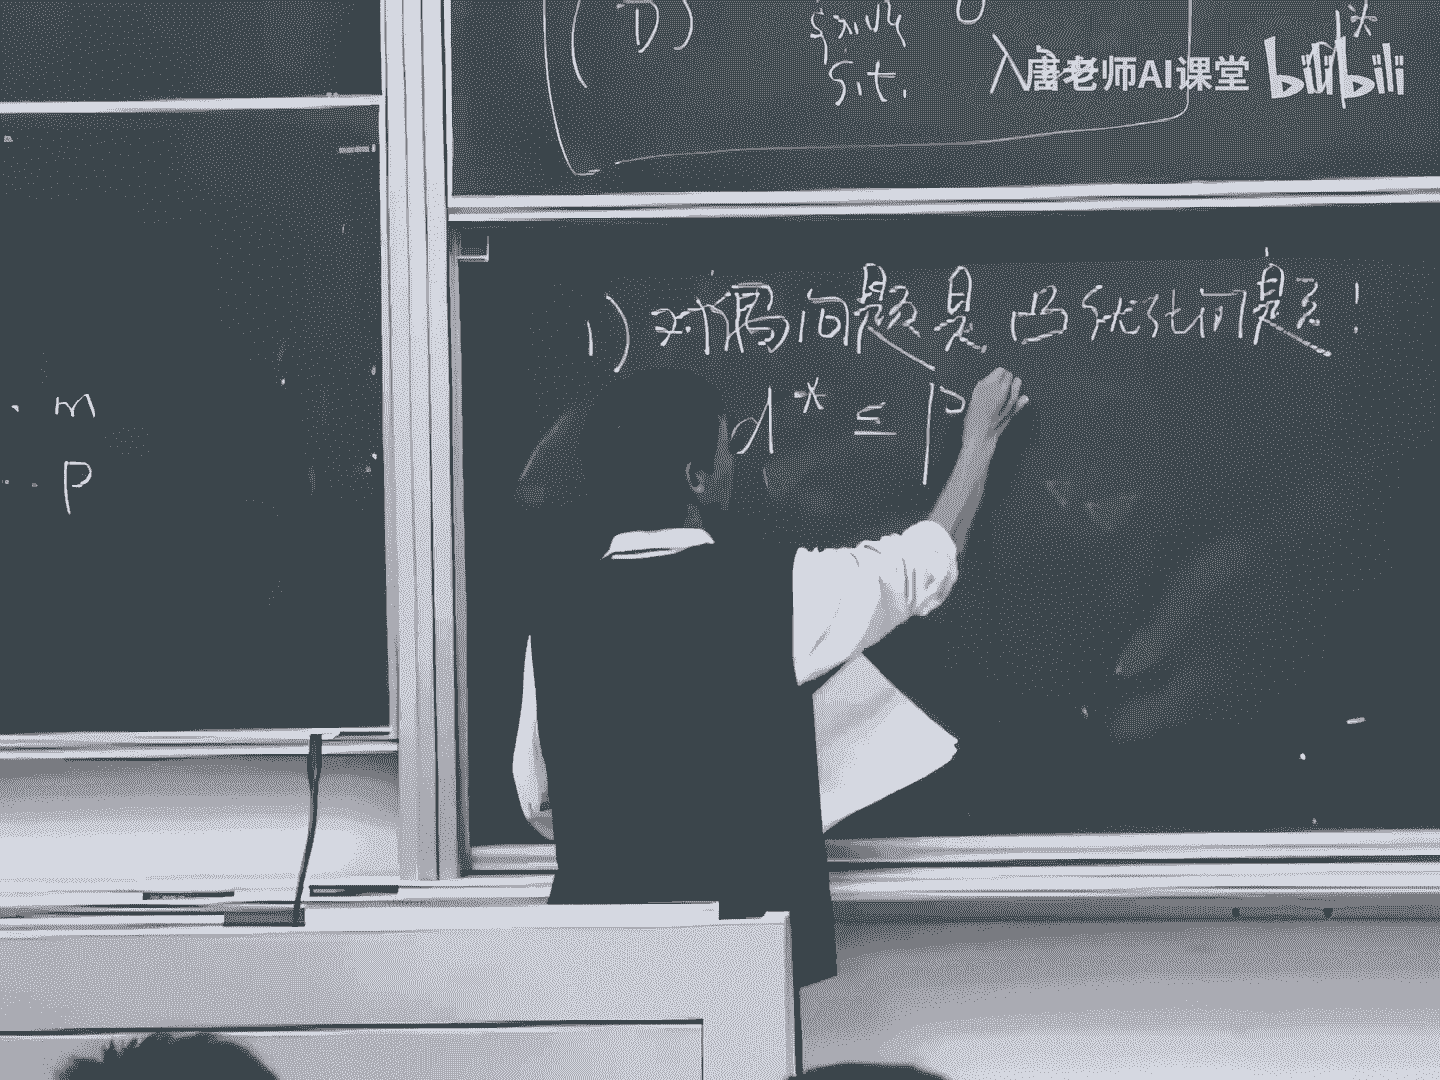 (D)
s.t.
唐老师AI课堂 bilibili
m
p
1) 对偶问题是凸优化问题!
d* ≤ p